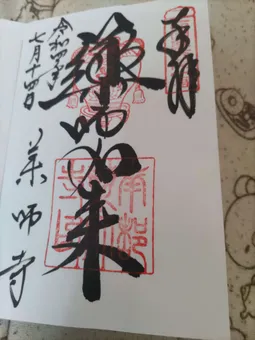 奉拝
薬師如来
令和四年
七月十四日
薬師寺